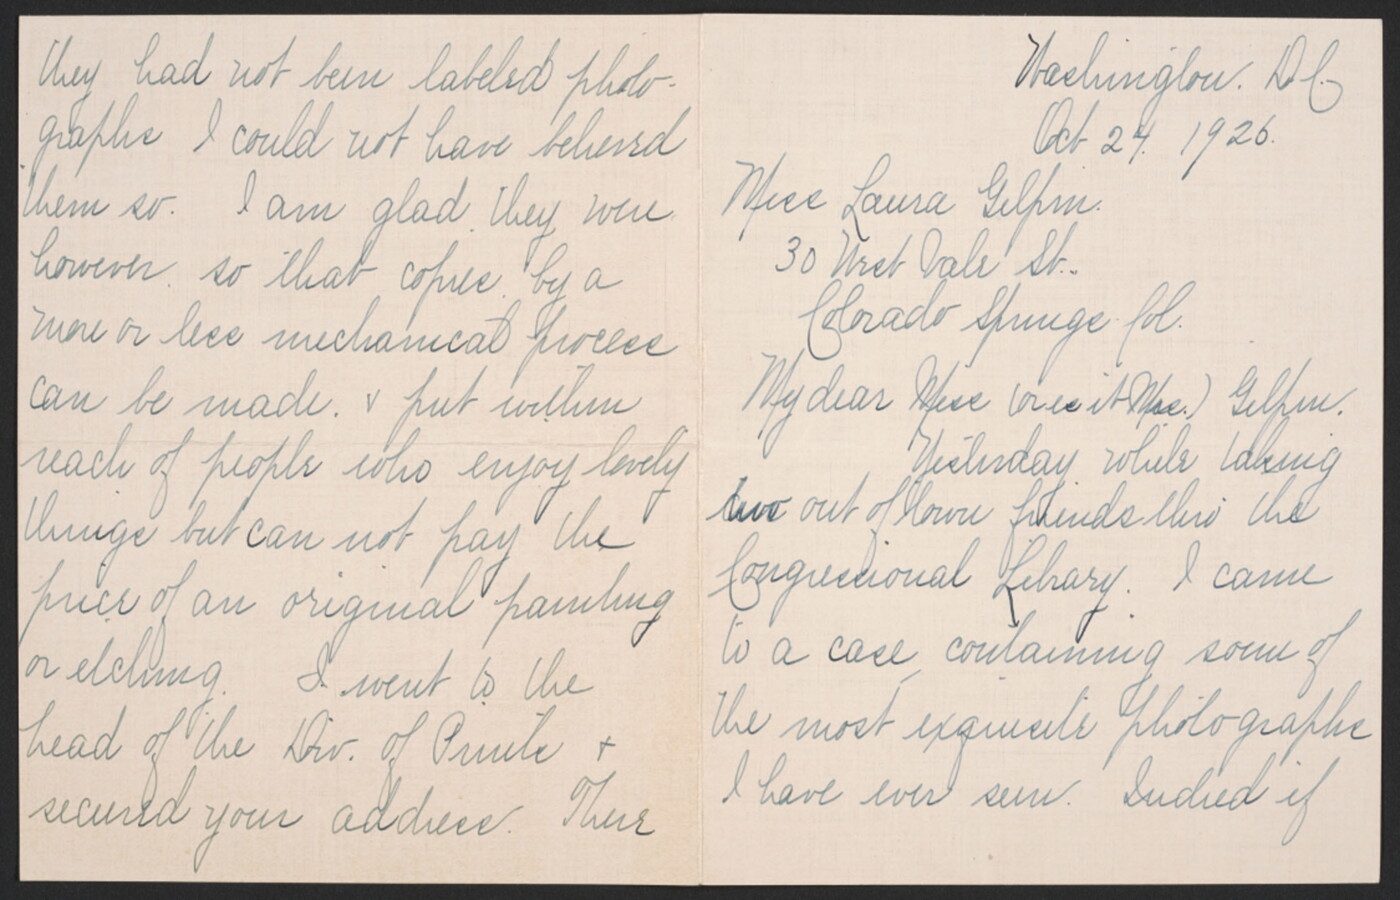 Washington. D.C.
Oct 24. 1926.
Miss Laura Gilpin.
30 West Dale St..
Colorado Springs Col.
My dear Miss (or is it Mrs.) Gilpin.
Yesterday while taking
two out of town friends thro' the
Congressional Library. I came
to a case containing some of
the most exquisite photographs
I have ever seen. Indeed if
they had not been labeled photo-
graphs I could not have believed
them so. I am glad they were
however. so that copies by a
more or less mechanical process
can be made. & put within
reach of people who enjoy lovely
things but can not pay the
price of an original painting
or etching. I went to the
head of the Div. of Prints &
secured your address. There